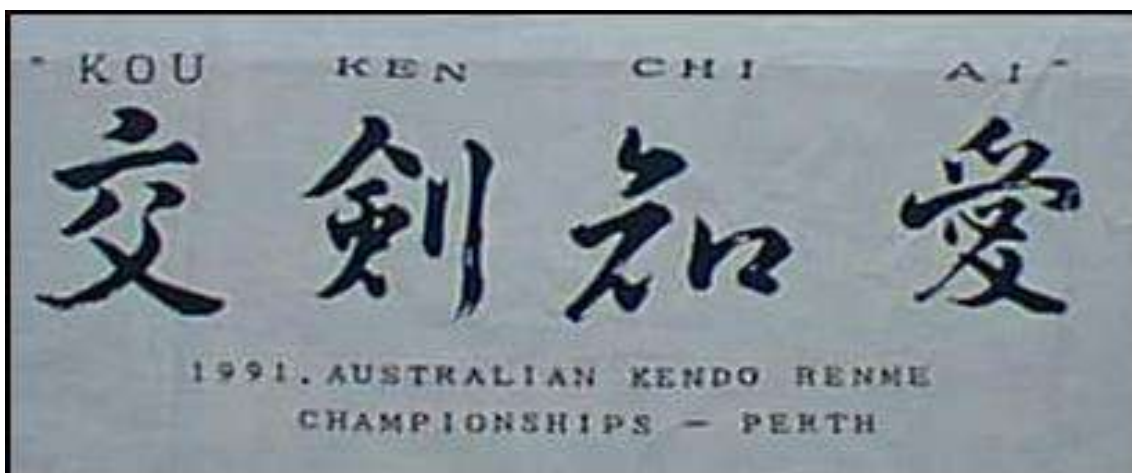 "KOU KEN CHI AI"
交剣知愛
1991. AUSTRALIAN KENDO RENME
CHAMPIONSHIPS - PERTH